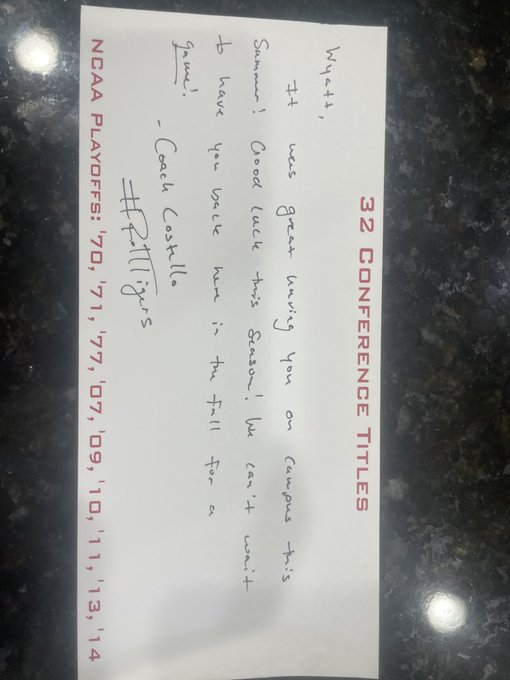 32 CONFERENCE TITLES
Wyatt,
It was great having you on campus this
Summer! Good luck this season! We can't wait
to have you back here in the fall for a
game!
- Coach Costello
#RollTigers
NCAA PLAYOFFS: '70, '71, '77, '07, '09, '10, '11, '13, '14